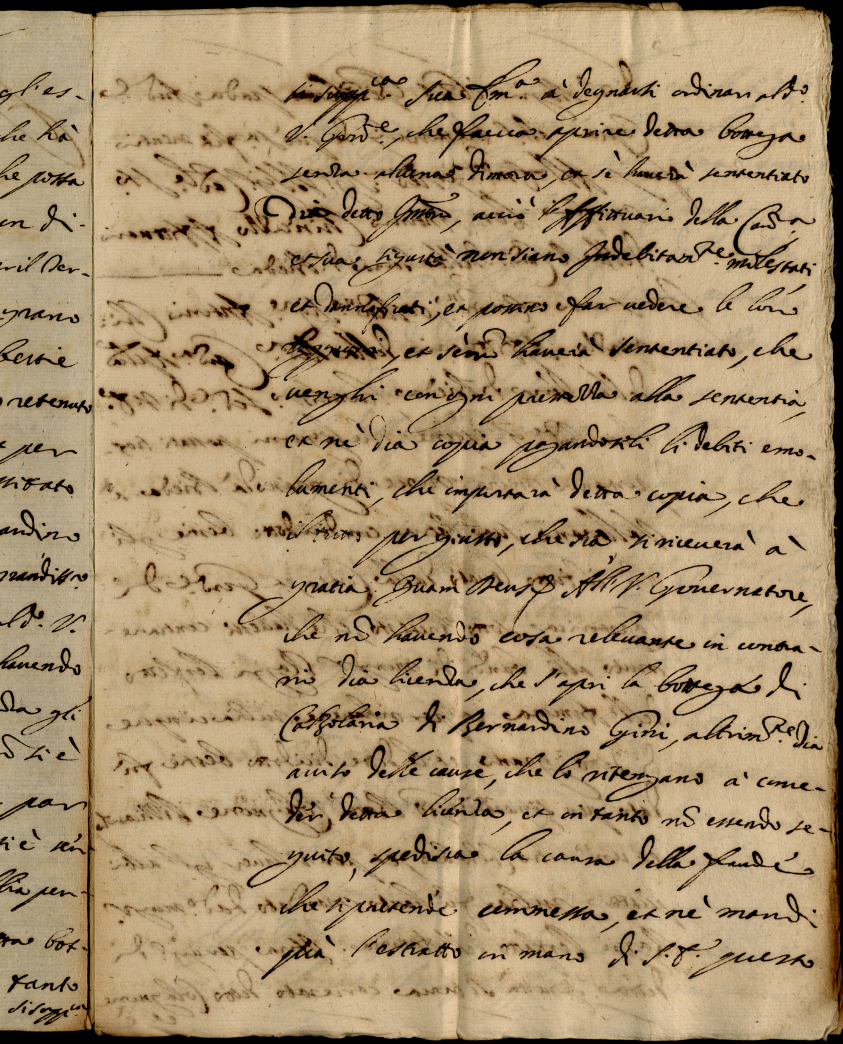 gl'es-
che hà
che possa
un di-
ril Ber-
grano
bestie
retenuto
per
ardino
ald.º V.
havendo
gli
si è
par
lia per-
bot-
tanto
si supp.ca
si supp.ca sua Em.a à degnarsi ordinare al d.º
V. Gov.re, che faccia aprire detta bottega
senza alcuna dimora, et sè haverà sententiato
detto, acciò l'Affittuari della Cam.a
et sua sigurtà non siano Indebitam.te molestati
et dannificati, et possino far vedere le loro
et sè haverà sententiato, che
venghi con ogni prestezza alla sententia,
et nè dia copia pagandoseli li debiti emo-
lumenti, che importarà detta copia, che
il tutto per giusto, che sia si riceverà à
gratia. Quam Deus
Al V. Governatore,
che nō havendo cosa relevante in contra-
rio dia licenza, che s'apri la bottega di
Calzolaria di Bernardino Gini, altrim.te dia
aviso delle cause, che lo ritengano à conce-
der detta licenza, et in tanto nō essendo se-
guito, spedisca la causa della fraude
che si pretende commessa, et nè mandi
quà l'estratto in mano di questo